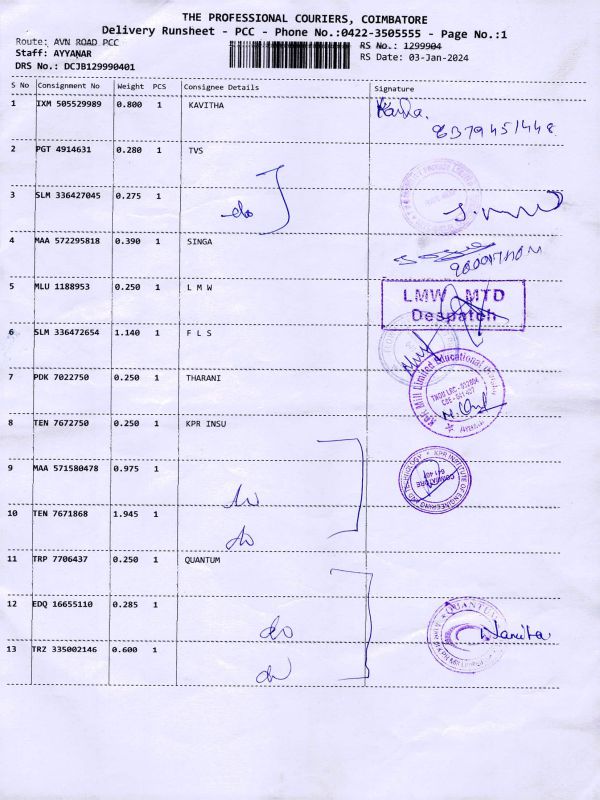 THE PROFESSIONAL COURIERS, COIMBATORE
Delivery Runsheet - PCC - Phone No.:0422-3505555 - Page No.:1
Route: AVN ROAD PCC RS No.: 1299904
Staff: AYYANAR RS Date: 03-Jan-2024
DRS No.: DCJB129990401
S No Consignment No Weight PCS Consignee Details Signature
1 IXM 505529989 0.800 1 KAVITHA Kavitha.
2 PGT 4914631 0.280 1 TVS
3 SLM 336427045 0.275 1 do
4 MAA 572295818 0.390 1 SINGA
5 MLU 1188953 0.250 1 L M W LMW MTD
Despatch
6 SLM 336472654 1.140 1 F L S
7 PDK 7022750 0.250 1 THARANI KPR Mill Limited Educational
8 TEN 7672750 0.250 1 KPR INSU
9 MAA 571580478 0.975 1 do KPR INSTITUTE OF ENGINEERING AND TECHNOLOGY
COIMBATORE
641 407
10 TEN 7671868 1.945 1 do
11 TRP 7706437 0.250 1 QUANTUM
12 EDQ 16655110 0.285 1 do QUANTUM
13 TRZ 335002146 0.600 1 do